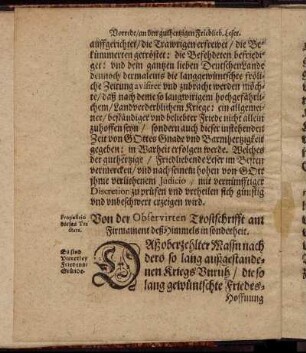 Vorrede/an den gutherzigen Friedlieb. Leser.
auffgerichtet/die Trawrigen erfrewet/die Be-
kümmerten getröstet: die Befehdeten befriedi-
get: und dem gantzen lieben Deutschen Lande
dennoch dermaleins die langgewünschte fröli-
che Zeitung avisiret und zubracht werden möch-
te/daß nach deme so langwirigem hochgefährli-
chem/Landverderblichem Kriege: ein allgemei-
ner/beständiger und beliebter Friede nicht allein
zuhoffen seyn/sondern auch dieser instehenden
Zeit von GOttes Gnade und Barmhertzigkeit
gegeben: in Warheit erfolgen werde. Welches
der gutherzige/Friedliebende Leser im Besten
vermercken/und nach seinem hohen von GOtt
ihme verliehenem Judicio, mit vernünfftiger
Discretion zu prüfen und urtheilen sich günstig
und unbeschwert erzeigen wird.
Von der Observirten Trostschrifft am
Firmament deß Himmels in sonderheit.
DAß oberzehlter Massn nach
dero so lang außgestande-
nen Kriegs Unruh/die so
lang gewüntschte Friedes-
Hoffnung